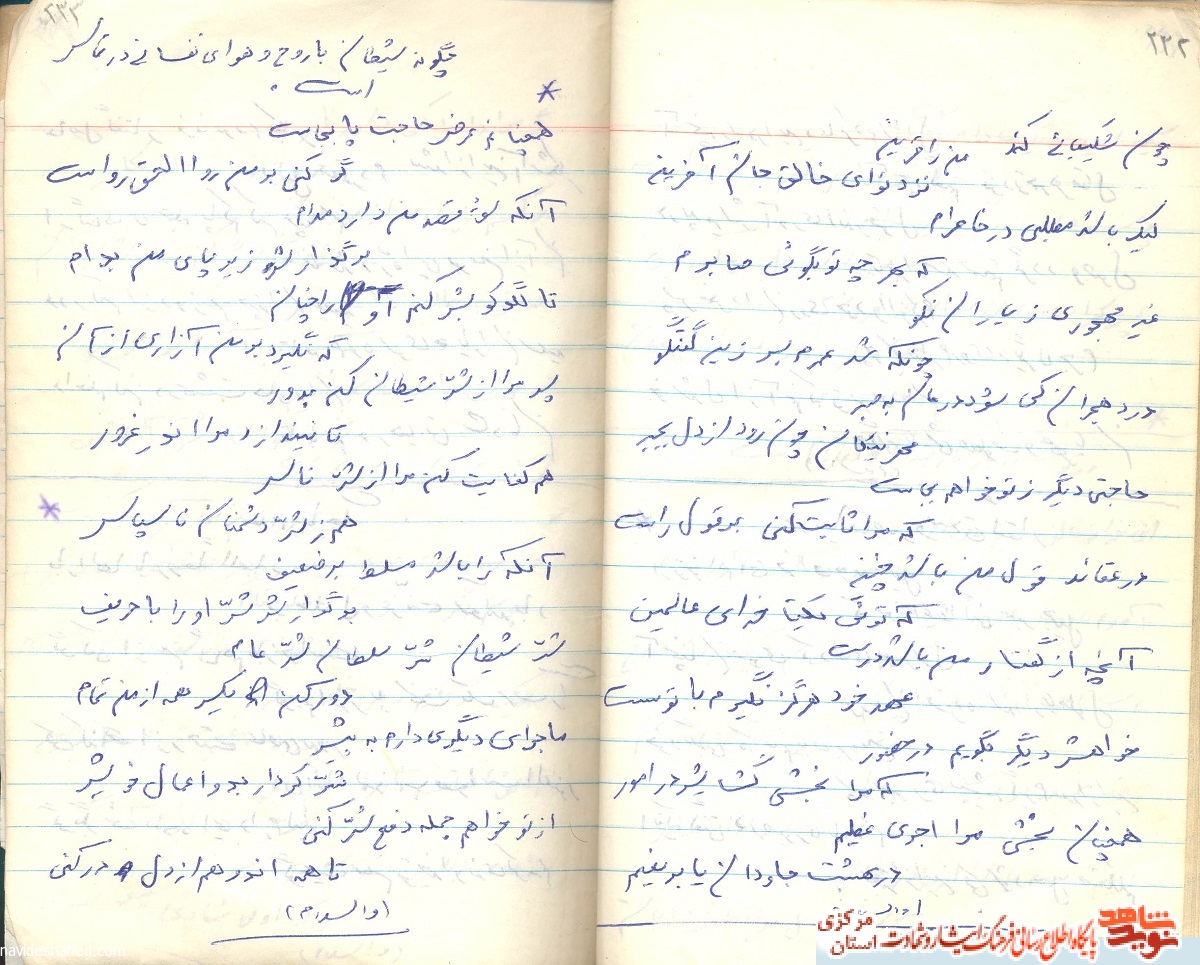 ۲۳۲
چون شکیبائی کند من را قرین
نزد تو ای خالق جان آفرین
لیک باشد مطلبی در خاطرم
که بهر چه تو بگوئی صابرم
غیر مهجوری ز یاران نکو
چونکه شد عمرم بسر زین گفتگو
درد هجران کی شود درمان به صبر
مهر نیکان چون رود از دل بجبر
حاجتی دیگر ز تو خواهم بجاست
که مرا ثابت کنی بر قول راست
در عقائد قول من باشد چنین
که توئی یکتا خدای عالمین
آنچه از گفتار من باشد درست
عهد خود هرگز نگیرم با تو سست
خواهش دیگر بگویم در حضور
که مرا بخشی گشایش در امور
همچنان بخشی مرا اجری عظیم
در بهشت جاودان یابم نعیم
۲۳۳
چگونه شیطان با روح و هوای نفسانی در تماس
است.
همچنانم عرض حاجت پا بجاست
گر کنی بر من روا الحق رواست
آنکه سوء قصد من دارد مدام
برگذارش زیر پای من بدام
تا نگو کوشش کنم او را چنان
که نگیرد بر من آزاری از آن
پس مرا از شرّ شیطان کن بدور
تا نیندازد مرا اندر غرور
هم کفایت کن مرا از شرّ ناس
هم ز شرّ دشمنان ناسپاس
آنکه را باشد مسلط بر ضعیف
برگذار شرّ او را با حریف
شرّ شیطان شرّ سلطان شرّ عام
دور کن یکسر همه از من تمام
ماجرای دیگری دارم به پیش
شرّ کردار بد و اعمال خویش
از تو خواهم جمله دفع شرّ کنی
تا همه اندر هم از دل در کنی
(والسلام)
نوید شاهد
پایگاه اطلاع رسانی فرهنگ ایثار و شهادت
استان مرکزی
navideshahed.com